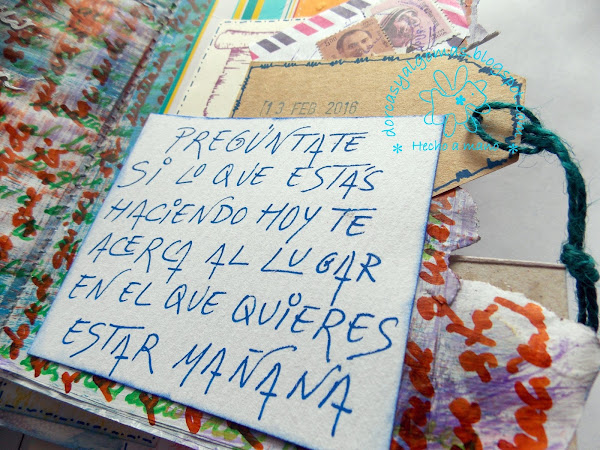 13 FEB 2016
dorcasyalgomas.blogspot
* Hecho a mano *
PREGÚNTATE
SI LO QUE ESTÁS
HACIENDO HOY TE
ACERCA AL LUGAR
EN EL QUE QUIERES
ESTAR MAÑANA